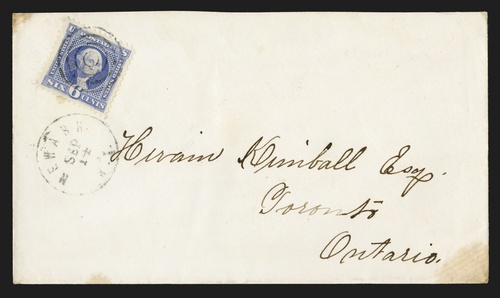 U S
POSTAGE
SIX 6 CENTS
NEWARK
SEP
14
Hiram Kimball Esq.
Toronto
Ontario.